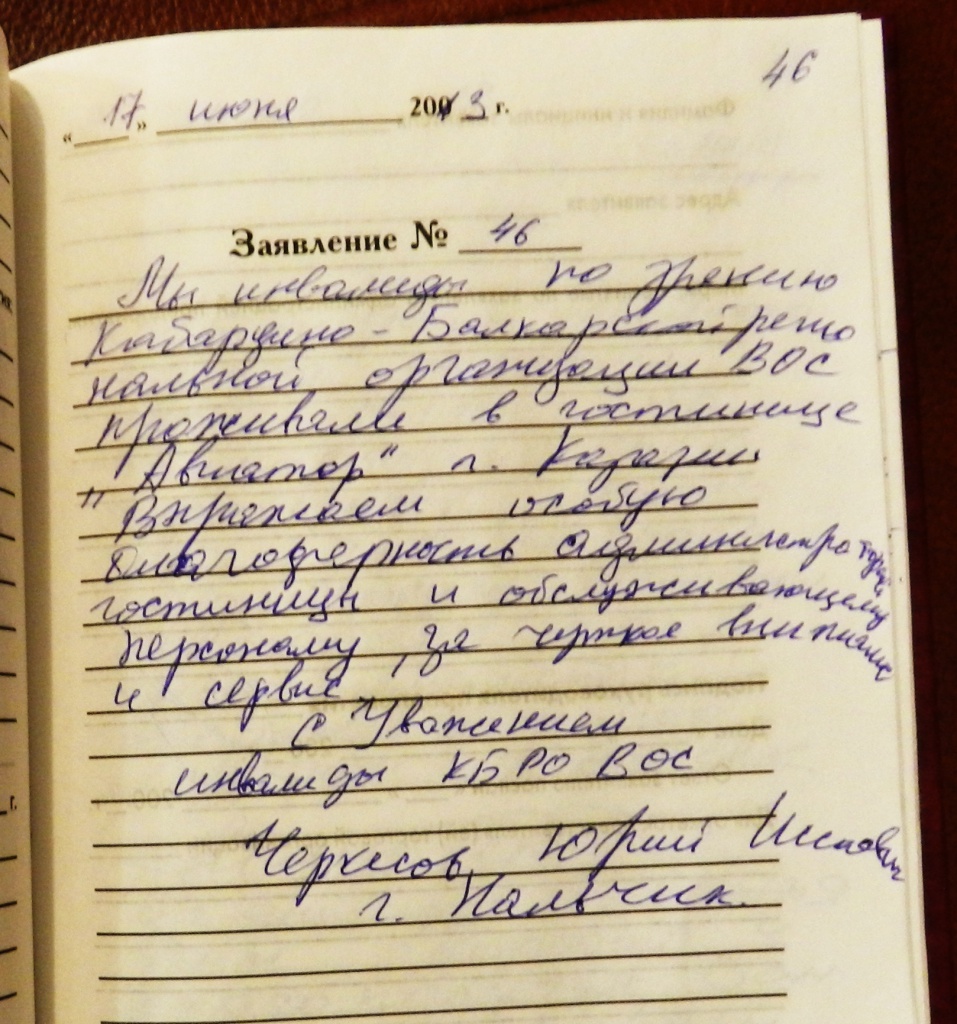 46
"17" июня 2013 г.
Заявление № 46
Мы инвалиды по зрению
Кабардино-Балкарской регио
нальной организации ВОС
проживали в гостинице
"Авиатор" г. Казани
Выражаем особую
благодарность администраторам
гостиницы и обслуживающему
персоналу, за чуткое внимание
и сервис.
С Уважением
инвалиды КБРО ВОС
Черкесов Юрий
г. Нальчик.